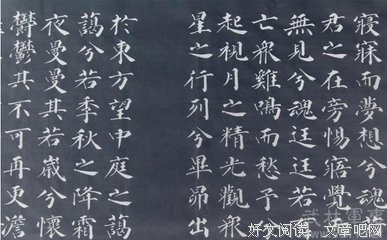 寢寐而夢想兮
君之在旁惕寤覺
無見兮魂迋迋若
亡衆雞鳴而愁予
起視月之精光觀衆
星之行列兮畢昴出
於東方望中庭之藹
藹兮若季秋之降霜
夜曼曼其若歲兮懷
鬱鬱其不可再更澹
好文阅读：文章吧网